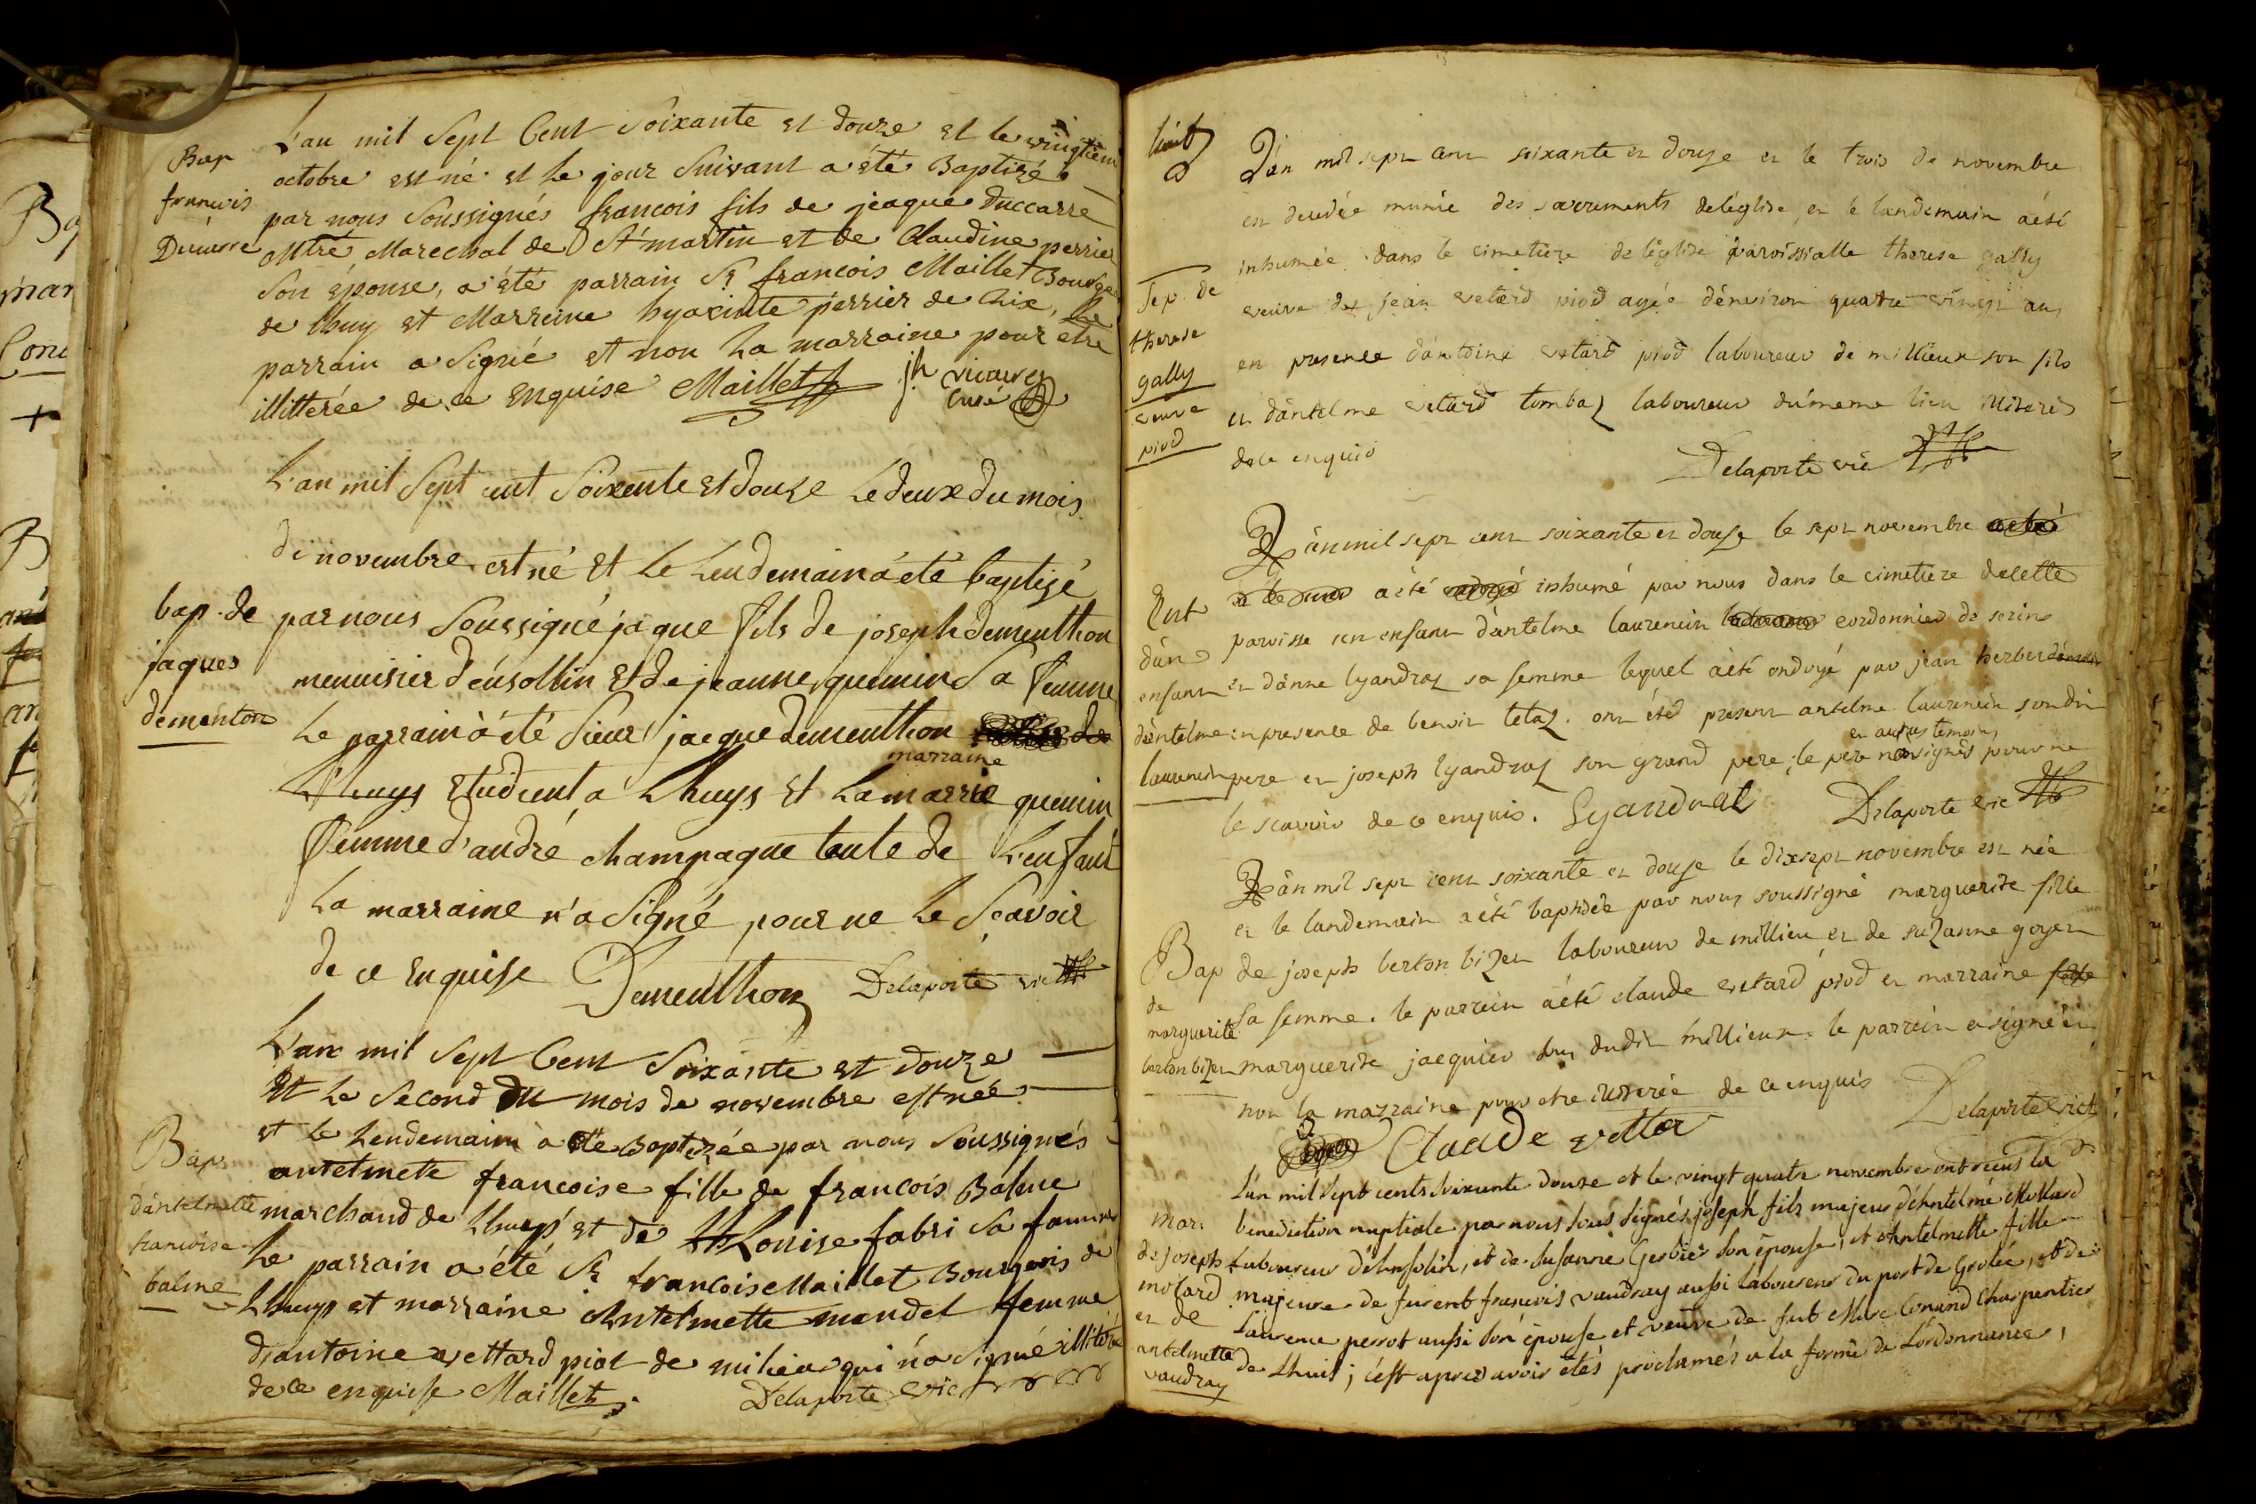 Bap
francois
Ducarre
L'an mil Sept Cent Soixante et douze et le vingtiem
octobre est né et le jour Suivant a été Baptizé
par nous Soussignés francois fils de jeaque Duccarre
Mtre Marechal de St martin et de Claudine perrier
Son épouse, a été parrain Sr francois Maillet Bourge
de Lhuy et Marreine hyacinte perrier de Lix, Le
parrain a Signé et non La marraine pour etre
illitterée de ce Enquise Maillet jh vicaire
Curé
bap. de
jaques
dementon
L'an mil Sept cent Soixente et douze Le deux du mois
de novembre est né Et Le Lendemain a été baptizé
par nous Soussigné jaque fils de joseph dementhon
menuisier d'ensollin Et de jeanne quemin Sa femme
Le parrain a été Sieur jacque dementhon
marraine
Lhuys Etudient a Lhuys Et La marrie quemin
femme d'andré champagne tente de L'enfant
La marraine n'a Signé pour ne Le Scavoir
de ce Enquise Dementhon Delaporte vic
Bap
d'antelmette
francoise
balme
L'an mil Sept Cent Soixante et douze
Et Le Second du mois de novembre est née
et Le Lendemain a été Baptizée par nous Soussignés
antelmete francoise fille de francois Balme
marchand de Lhuys et de Louise fabri Sa famme
Le parrain a été Sr francois Maillet Bourgeois de
Lhuys et marraine Antelmette mandet femme
d'antoine vettard piot de milieu qui n'a Signé illitéré
de ce enquise Maillet. Delaporte vic
Sep. de
therese
gally
veuve
piod
L'an mil sept cent soixante et douze et le trois de novembre
est decedée munie des sacrements de l'eglise, et le landemain a été
inhumée dans le cimetiere de l'eglise paroissialle therese gally
veuve de jean vetard piod agée d'environ quatre vingt ans
en presence d'antoine vetard piod laboureur de millieux son fils
et d'antelme vetard tombaz laboureur du meme lieu illiterés
de ce enquis
Delaporte vic
Ent
d'un
enfant
d'antelme
laurencin
L'an mil sept cent soixante et douze le sept novembre
a été inhumé par nous dans le cimetiere de cette
paroisse un enfant d'antelme laurencin cordonnier de serin
et d'anne lyandraz sa femme lequel a été ondoyé par jean herber
en presence de benoit tetaz. ont été present antelme laurencin son dit
et autres temoins
pere et joseph lyandraz son grand pere; le pere non signés pour ne
le scavoir de ce enquis. Lyandrat Delaporte vic
Bap
de
marguerite
berton bizet
L'an mil sept cent soixante et douze le dixsept novembre est née
et le landemain a été baptisée par nous soussigné marguerite fille
de joseph berton bizet laboureur de millieu et de suzanne goyet
sa femme. le parrein a été claude vetard piod et marraine
marguerite jacquier dudit millieux. le parrein a signé et
non la marraine pour etre illiterée de ce enquis
Delaporte vict
Claude vettar
mar.
de joseph
molard
et de
antelmette
vaudray
L'an mil Sept cents Soixante douze et le vingt quatre novembre ont recus la
benediction nuptiale par nous sous signés joseph fils majeur d'Antelme Mollard
Laboureur d'Ansolin, et de Susanne Gerbier Son épouse, et Antelmette fille
majeure de furent francois vaudray aussi laboureur du port de Grolée, et de
Laurence perrot aussi Son épouse et veuve de fut Marc Conand Charpentier
de Lhuis; c'est apres avoir étés proclamés a la forme de L'ordonnance,